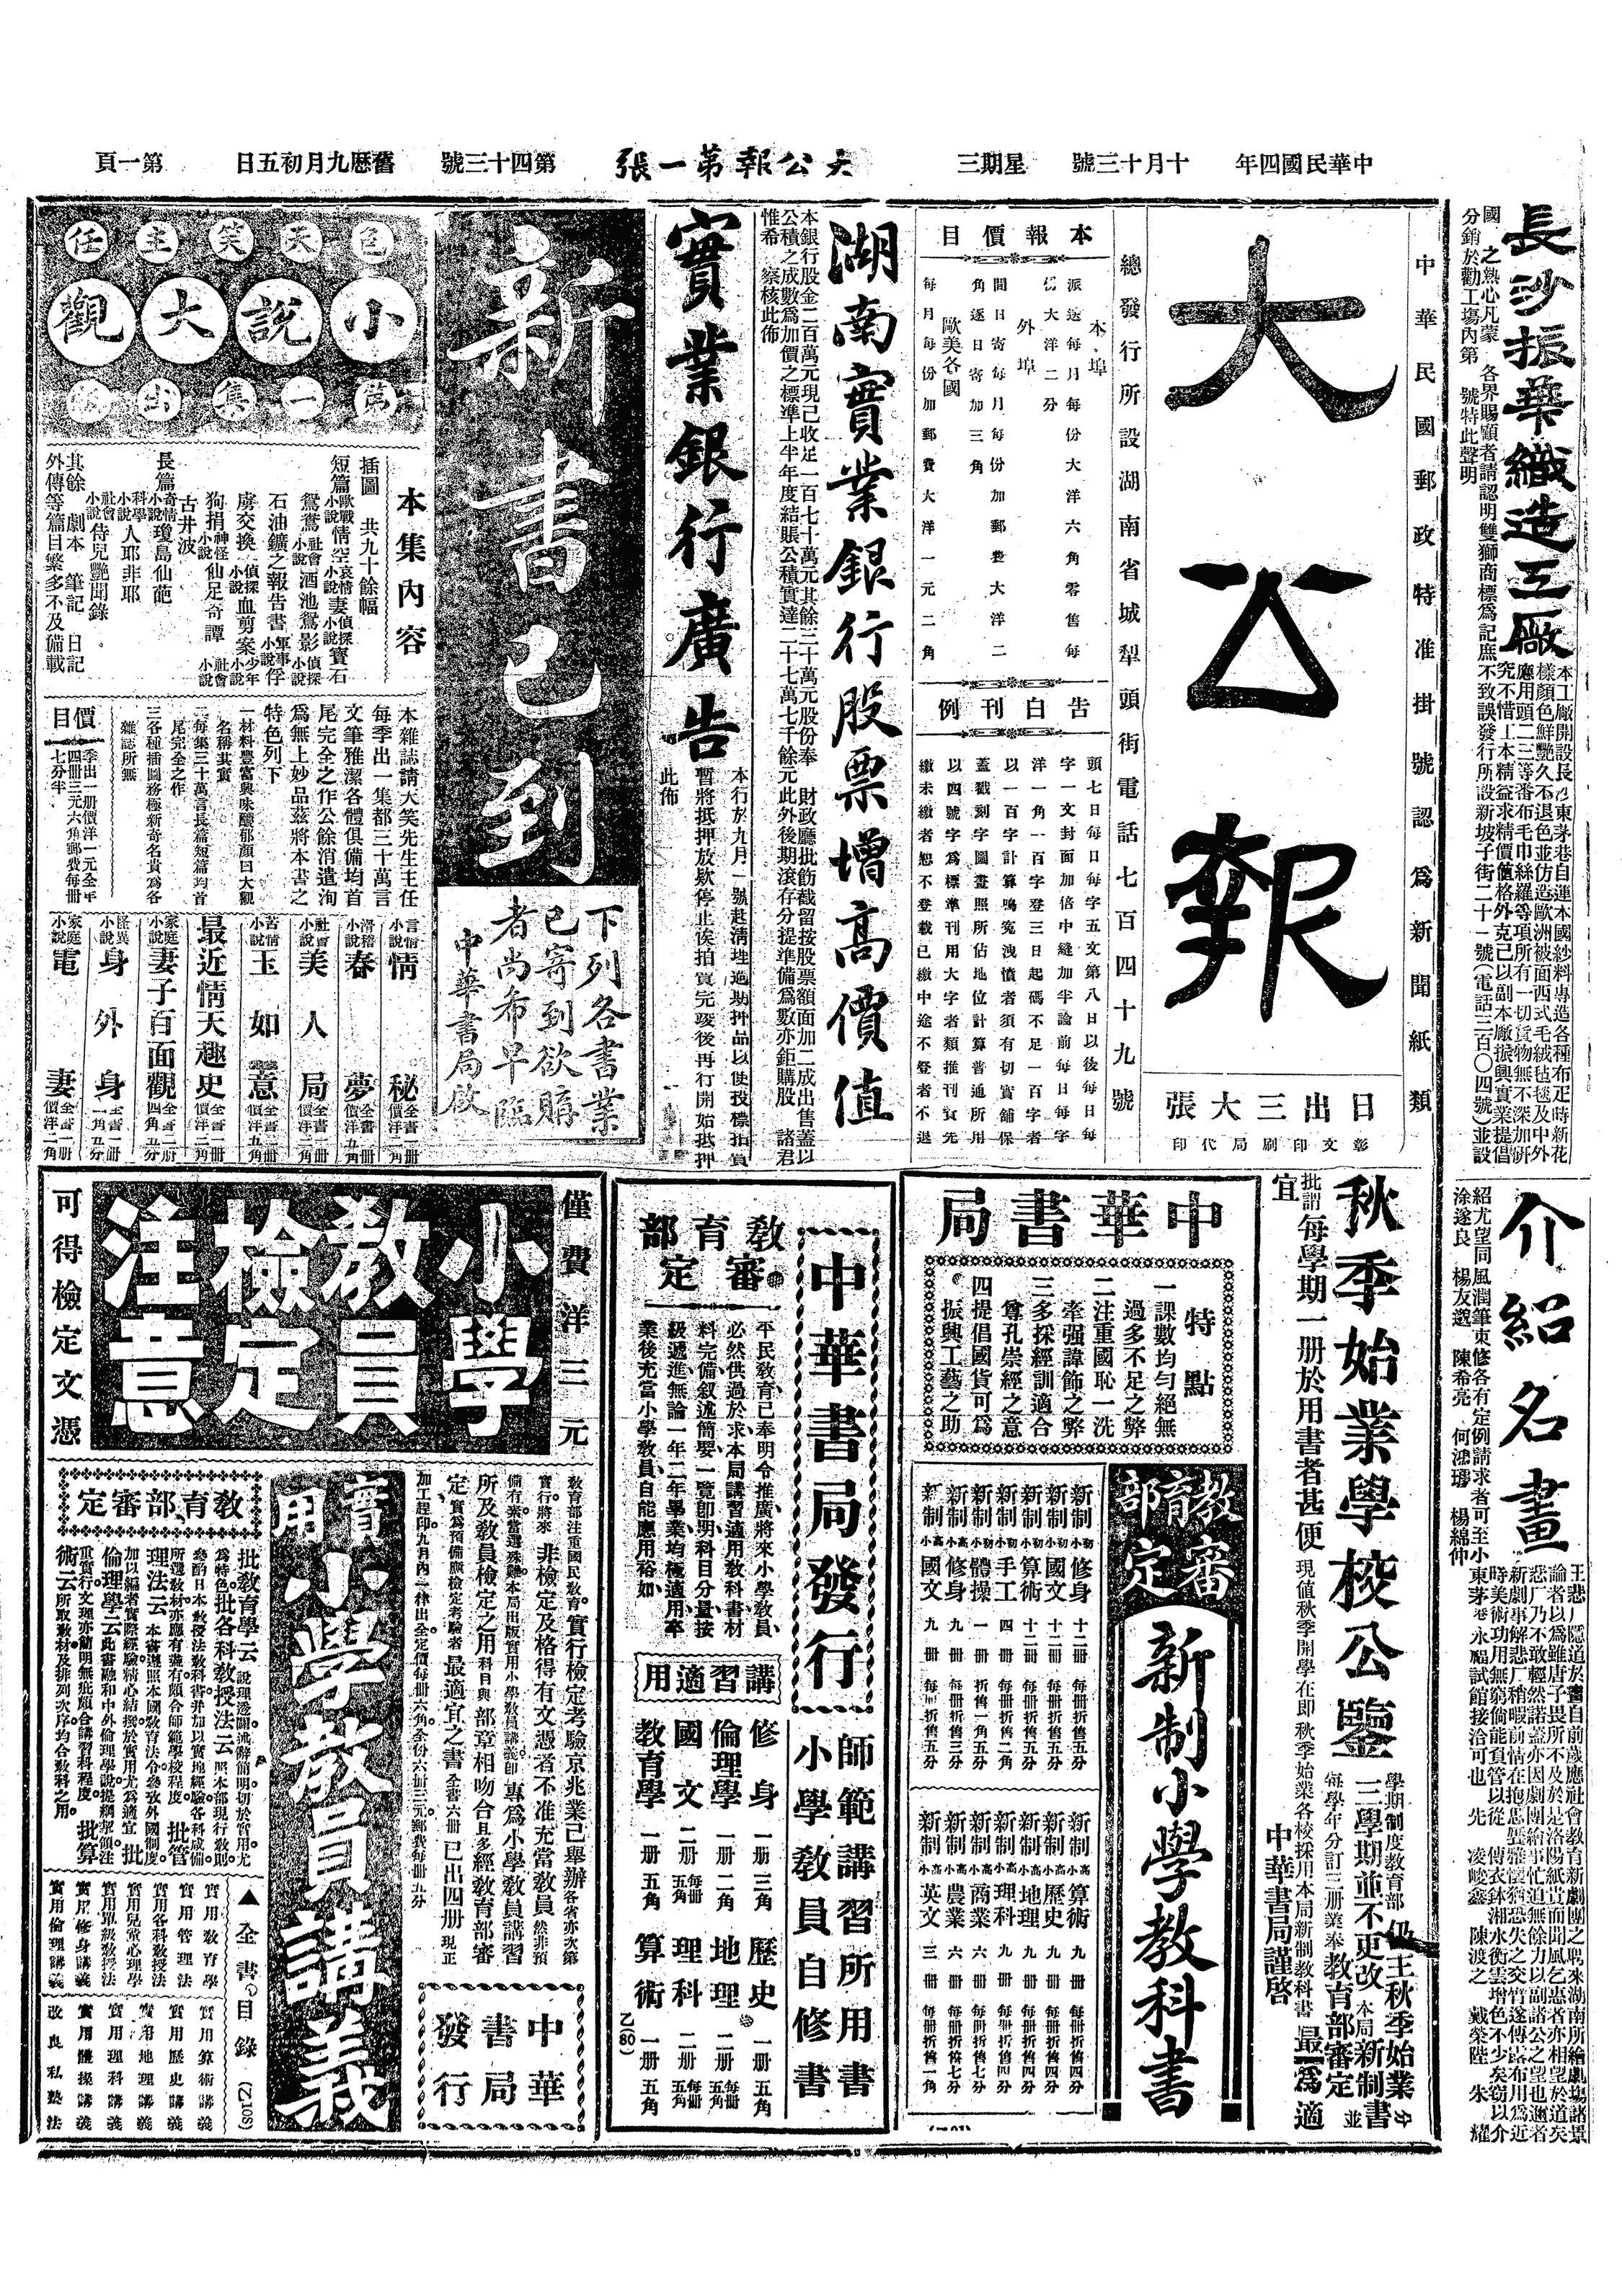 中華民國四年 十月十三號 星期三 大公報第一張 第四十三號 舊曆九月初五日 第一頁
長沙振華織造工廠
本工廠開設長沙東茅巷自運本國紗料專造各種布疋時新花
樣顏色鮮艷久不退色並仿造歐洲被面西式毛絨毡毯及中外
應用頭二三等番布毛巾絲羅等項所有一切貨物無不深加研
究不惜工本精益求精價值格外克己以副本廠振興實業提倡
國 之熱心凡蒙 各界賜顧者請認明雙獅商標為記庶不致誤發行所設新坡子街二十一號(電話三百〇四號)並設
分銷於勸工塲內第 號特此聲明
介紹名畫
王悲厂隱遁於畫自前歲應社會教育新劇團之聘來湖南所繪劇塲諸景
論者以為雖唐子畏所不及於是洛陽紙貴而聞風乞惠者亦相望於道矣
悲厂乃不敢輕然諾蓋亦因劇團繪事忙迫無餘力以副諸公之望也邇者
時美術功用無窮倘能負管以從
紹尤望同風潤筆束修各有定例請求者可至小東茅巷永福試館接洽可也 先 凌峻鑫 陳渡之 戴榮陞 朱 耀
涂遂良 楊友邈 陳希亮 何鴻璆 楊綿仲
中華民國郵政特准掛號認為新聞紙類
大公報
日出三大張
彰文印刷局代印
總發行所設湖南省城犁頭街電話七百四十九號
本報價目
本埠
派送每月每份大洋六角零售每
份大洋二分
外埠
間日寄每月每份加郵費大洋二
角逐日寄加三角
歐美各國
每月每份加郵費大洋一元二角
告白刊例
頭七日每日每字五文第八日以後每日每
字一文封面加倍中縫加半論前每日每字
洋一角一百字登三日起碼不足一百字者
以一百字計算鳴寃洩憤者須有切實舖保
蓋戳刻字圖畫照所佔地位計算普通所用
以四號字為標準刊用大字者類推刊資先
繳未繳者恕不登載已繳中途不登者不退
湖南實業銀行股票增高價值
本銀行股金二百萬元現已收足一百七十萬元其餘三十萬元股份奉 財政廳批飭截留按股票額面加二成出售蓋以
公積之成數為加價之標準上半年度結賬公積實達二十七萬七千餘元此外後期滾存分提準備為數亦鉅購股 諸君
惟希 察核此佈
實業銀行廣告
暫將抵押放欵停止俟拍賣完竣後再行開始抵押
此佈
新書已到
下列各書業
已寄到欲購
者尚希早臨
中華書局啟
天笑主任
小說大觀
第一集出版
本集內容
插圖 共九十餘幅
短篇 歐戰小說情空 哀情小說妻 偵探小說寶石
鴛鴦 社會小說酒池鴛影 偵探小說
石油鑛之報告書 軍事小說俘
虜交換 偵探小說血剪案 少年小說
狗捐 神怪小說仙足奇譚 社會小說
古井波
長篇 奇情小說瓊島仙葩
科學小說人耶非耶
社會小說侍兒艷聞錄
其餘 劇本 筆記 日記
外傳等篇目繁多不及備載
本雜誌請天笑先生主任
每季出一集都三十萬言
文筆雅潔各體俱備均首
尾完全之作公餘消遣洵
為無上妙品茲將本書之
特色列下
一材料豐富興味醲郁顏曰大觀
名稱其實
二每集三十萬言長篇短篇均首
尾完全之作
三各種插圖務極新奇名貴為各
雜誌所無
價目
季出一册價洋一元全年
四册三元六角郵費每册
七分半
言情小說 情秘 全書一册
滑稽小說 春夢 全書一册
社會小說 美人局 全書一册
苦情小說 玉如意
最近情天趣史
家庭小說 妻子百面觀
怪異小說 身外身
家庭小說 電妻
秋季始業學校公鑒
學期制度教育部仍主秋季始業分
三學期並不更改本局新制書
每學年分訂三册業奉教育部審定並
批謂每學期一册於用書者甚便 現值秋季開學在即秋季始業各校採用本局新制教科書最為適
宜
中華書局謹啓
中華書局
特點
一課數均勻絕無
過多不足之弊
二注重國恥一洗
牽强諱飾之弊
三多採經訓適合
尊孔崇經之意
四提倡國貨可為
振興工藝之助
教育部審定
新制小學教科書
新制 初小 修身 十二册 每册折售五分
新制 初小 國文 十二册 每册折售五分
新制 初小 算術 十二册 每册折售五分
新制 初小 手工 四册 每册折售二角
新制 初小 體操 一册 折售一角五分
新制 高小 修身 九册 每册折售三分
新制 高小 國文 九册 每册折售五分
新制 高小 算術 九册 每册折售四分
新制 高小 歷史 九册 每册折售四分
新制 高小 地理 九册 每册折售四分
新制 高小 理科 九册 每册折售四分
新制 高小 商業 六册 每册折售七分
新制 高小 農業 六册 每册折售七分
新制 高小 英文 三册 每册折售一角
中華書局發行
師範講習所用書
小學教員自修書
教育部審定
平民教育已奉明令推廣將來小學教員
必然供過於求本局講習適用教科書材
料完備叙述簡要一覽即明科目分量按
級遞進無論一年二年畢業均極適用卒
業後充當小學教員自能應用裕如
講習適用
修身 一册 三角
倫理學 一册 二角
國文 二册 每册五角
教育學 一册 五角
歷史 一册 五角
地理 二册 每册五角
理科 二册 每册五角
算術 一册 五角
乙(80)
僅費洋三元
小學教員檢定注意
可得檢定文憑
教育部注重國民教育實行檢定考驗京兆業已舉辦各省亦次第
實行將來非檢定及格得有文憑者不准充當教員然非預
備有素當選殊難本局出版實用小學教員講義即專為小學教員講習
所及教員檢定之用科目與部章相吻合且多經教育部審
定實為預備應檢定考驗者最適宜之書全書六册已出四册現正
加工趕印九月內一律出全定價每册六角全份六册三元郵費每册九分
中華書局發行
實用小學教員講義
教育部審定
批教育學云說理透闢疏解簡明切於實用尤
為特色批各科教授法云照本部現行教則
參酌日本教授法教科書并加以實地經驗各科咸備
所選教材亦應有盡有頗合師範學校程度批管
理法云本書遵照本國教育法令參攷外國制度
加以編者實際經驗精心結撰於實用尤為適宜批
倫理學云此書融和中外倫理學說提綱挈領注
重實行文理亦簡明無疵頗合講習科程度批算
術云所取教材及排列次序均合教科之用
▲全書目錄 (乙108)
實用教育學
實用管理法
實用各科教授法
實用兒童心理學
實用單級教授法
實用修身講義
實用倫理講義
實用算術講義
實用歷史講義
實用地理講義
實用理科講義
實用體操講義
改良私塾法